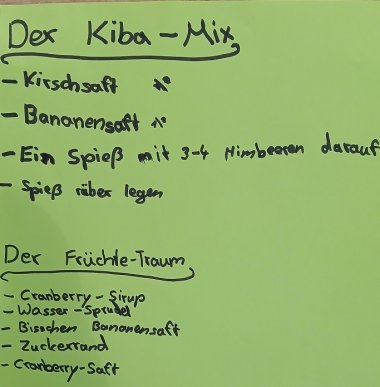 Der Kiba-Mix
- Kirschsaft
- Bananensaft
- Ein Spieß mit 3-4 Himbeeren darauf
- Spieß rüber legen
Der Früchte-Traum
- Cranberry-Sirup
- Wasser-Sprudel
- Bisschen Bananensaft
- Zuckerrand
- Cranberry-Saft